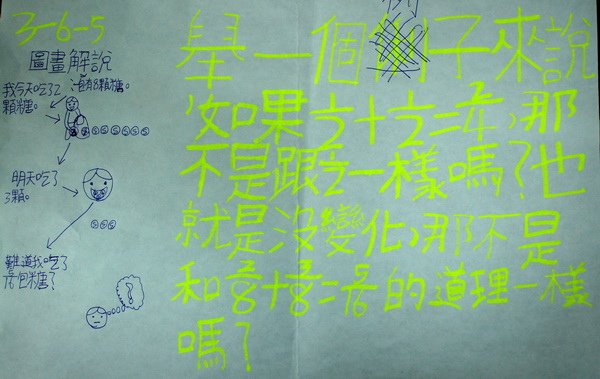 3-6-5
圖畫解說
我今天吃了2
顆糖。
1包有8顆糖。
明天吃了
3顆。
難道我吃了
5/16包糖?
?
例
舉一個子來說
如果1/2+1/2=2/4,那
不是跟1/2一樣嗎?也
就是沒變化,那不是
和2/8+3/8=5/16的道理一樣
嗎?